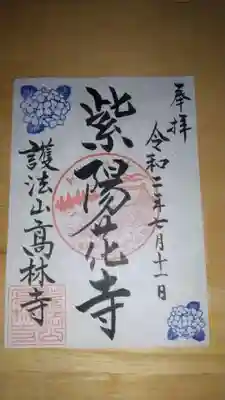 奉拝
令和二年七月十一日
紫陽花寺
護法山高林寺